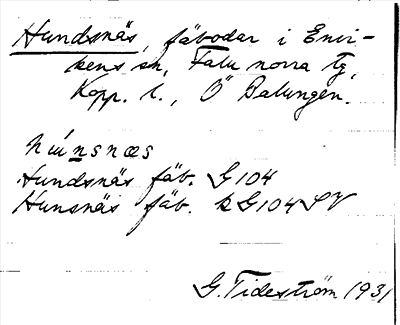 Hundsnäs, fäbodar i Envi-
kens sn, Falu norra tg,
Kopp. l., Ö Balungen.
húnsnæs
Hundsnäs fäb. G 104
Hunsnäs fäb. k G 104 SV
G. Tideström 1931